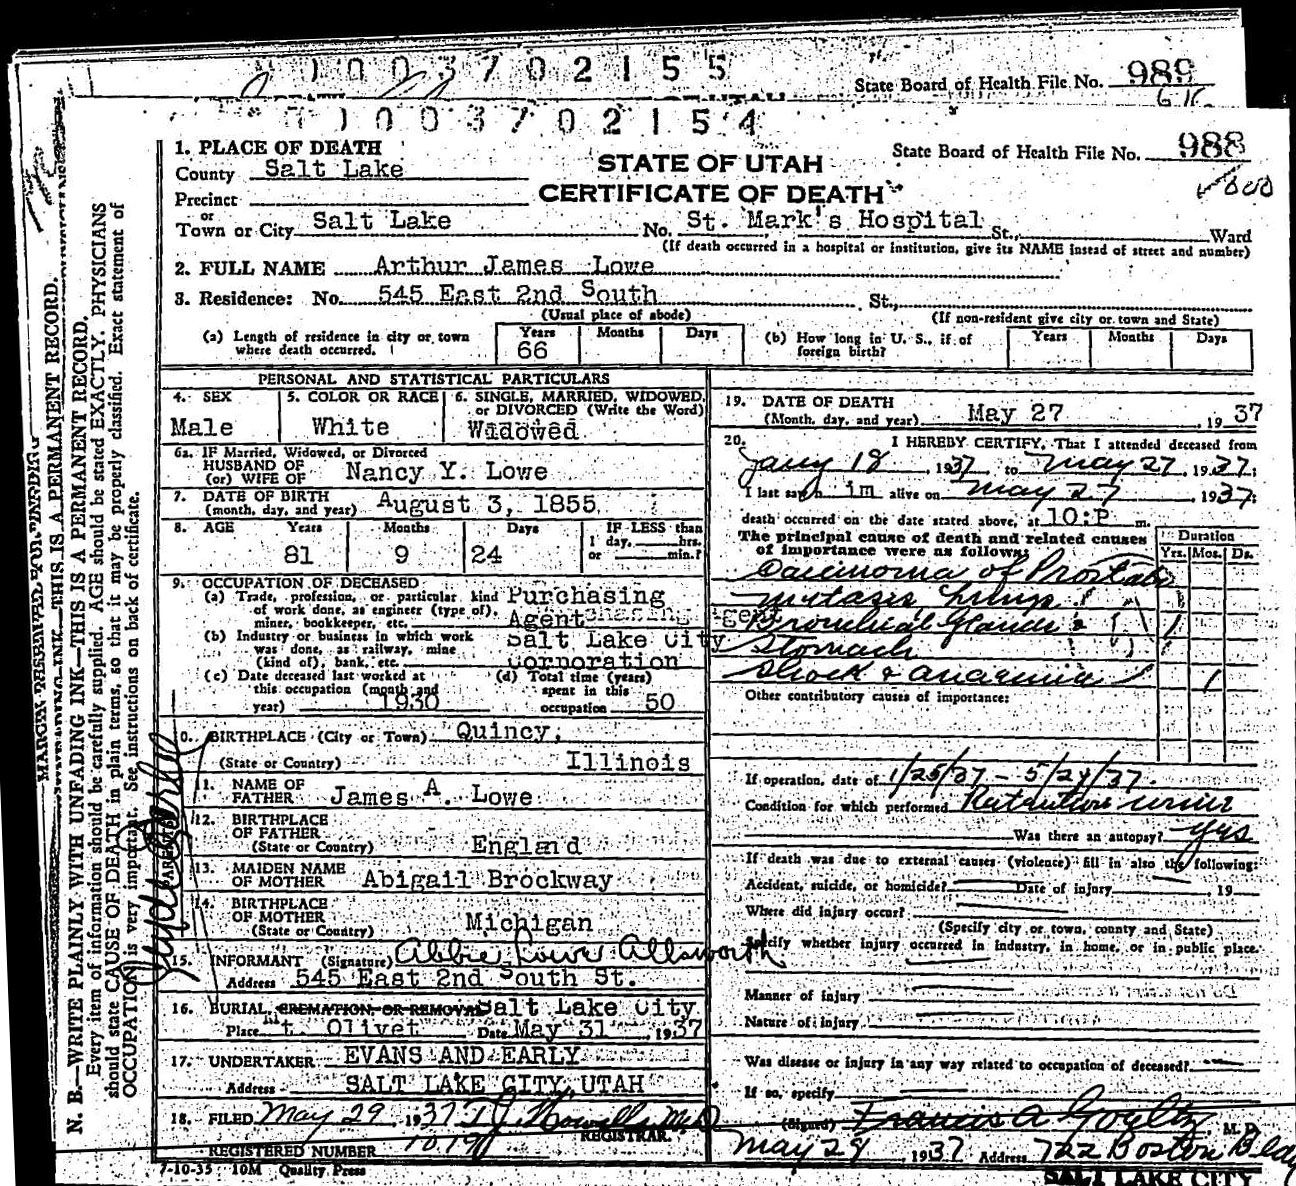 1003702155
State Board of Health File No. 989
1003702154
1. PLACE OF DEATH
STATE OF UTAH
State Board of Health File No. 988
County Salt Lake
CERTIFICATE OF DEATH
Precinct
or
Town or City Salt Lake No. St. Mark's Hospital St., Ward
(If death occurred in a hospital or institution, give its NAME instead of street and number)
2. FULL NAME Arthur James Lowe
3. Residence: No. 545 East 2nd South St.,
(Usual place of abode) (If non-resident give city or town and State)
(a) Length of residence in city or town where death occurred. Years 66 Months Days
(b) How long in U. S., if of foreign birth? Years Months Days
PERSONAL AND STATISTICAL PARTICULARS
4. SEX Male
5. COLOR OR RACE White
6. SINGLE, MARRIED, WIDOWED, or DIVORCED (Write the Word) Widowed
6a. IF Married, Widowed, or Divorced
HUSBAND OF
(or) WIFE OF Nancy Y. Lowe
7. DATE OF BIRTH
(month, day, and year) August 3, 1855
8. AGE Years 81 Months 9 Days 24 IF LESS than 1 day, hrs. or min.?
9. OCCUPATION OF DECEASED
(a) Trade, profession, or particular kind of work done, as engineer (type of), miner, bookkeeper, etc. Purchasing Agent
(b) Industry or business in which work was done, as railway, mine (kind of), bank, etc. Salt Lake City Corporation
(c) Date deceased last worked at this occupation (month and year) 1930
(d) Total time (years) spent in this occupation 50
10. BIRTHPLACE (City or Town) Quincy,
(State or Country) Illinois
PARENTS
11. NAME OF FATHER James A. Lowe
12. BIRTHPLACE OF FATHER
(State or Country) England
13. MAIDEN NAME OF MOTHER Abigail Brockway
14. BIRTHPLACE OF MOTHER
(State or Country) Michigan
15. INFORMANT (Signature) Abbie Lowe Allsworth
Address 545 East 2nd South St.
16. BURIAL, CREMATION, OR REMOVAL Salt Lake City
Place Mt. Olivet Date May 31, 1937
17. UNDERTAKER EVANS AND EARLY
Address SALT LAKE CITY, UTAH
18. FILED May 29, 1937 T J Howells M.D
REGISTRAR.
REGISTERED NUMBER
7-10-35 10M Quality Press
19. DATE OF DEATH
(Month, day, and year) May 27 1937
20. I HEREBY CERTIFY, That I attended deceased from
Jany 18, 1937, to May 27, 1937;
I last saw him alive on May 27, 1937;
death occurred on the date stated above, at 10:P m.
The principal cause of death and related causes of importance were as follows:
Duration
Yrs. Mos. Ds.
Carcinoma of Prostate
Metasis, Lungs
Bronchial Glands & 1
Stomach
Shock & anaemia 1
Other contributory causes of importance:
If operation, date of 1/25/37 - 5/24/37.
Condition for which performed Retention urine
Was there an autopsy? yes
If death was due to external causes (violence) fill in also the following:
Accident, suicide, or homicide? Date of injury 19
Where did injury occur?
(Specify city or town, county and State)
Specify whether injury occurred in industry, in home, or in public place.
Manner of injury
Nature of injury
Was disease or injury in any way related to occupation of deceased?
If so, specify
(Signed) Francis A Goeltz, M. D.
May 28 1937 Address 722 Boston Bldg
SALT LAKE CITY
MARGIN RESERVED FOR BINDING
N. B.—WRITE PLAINLY WITH UNFADING INK—THIS IS A PERMANENT RECORD.
Every item of information should be carefully supplied. AGE should be stated EXACTLY. PHYSICIANS
should state CAUSE OF DEATH in plain terms, so that it may be properly classified. Exact statement of
OCCUPATION is very important. See instructions on back of certificate.